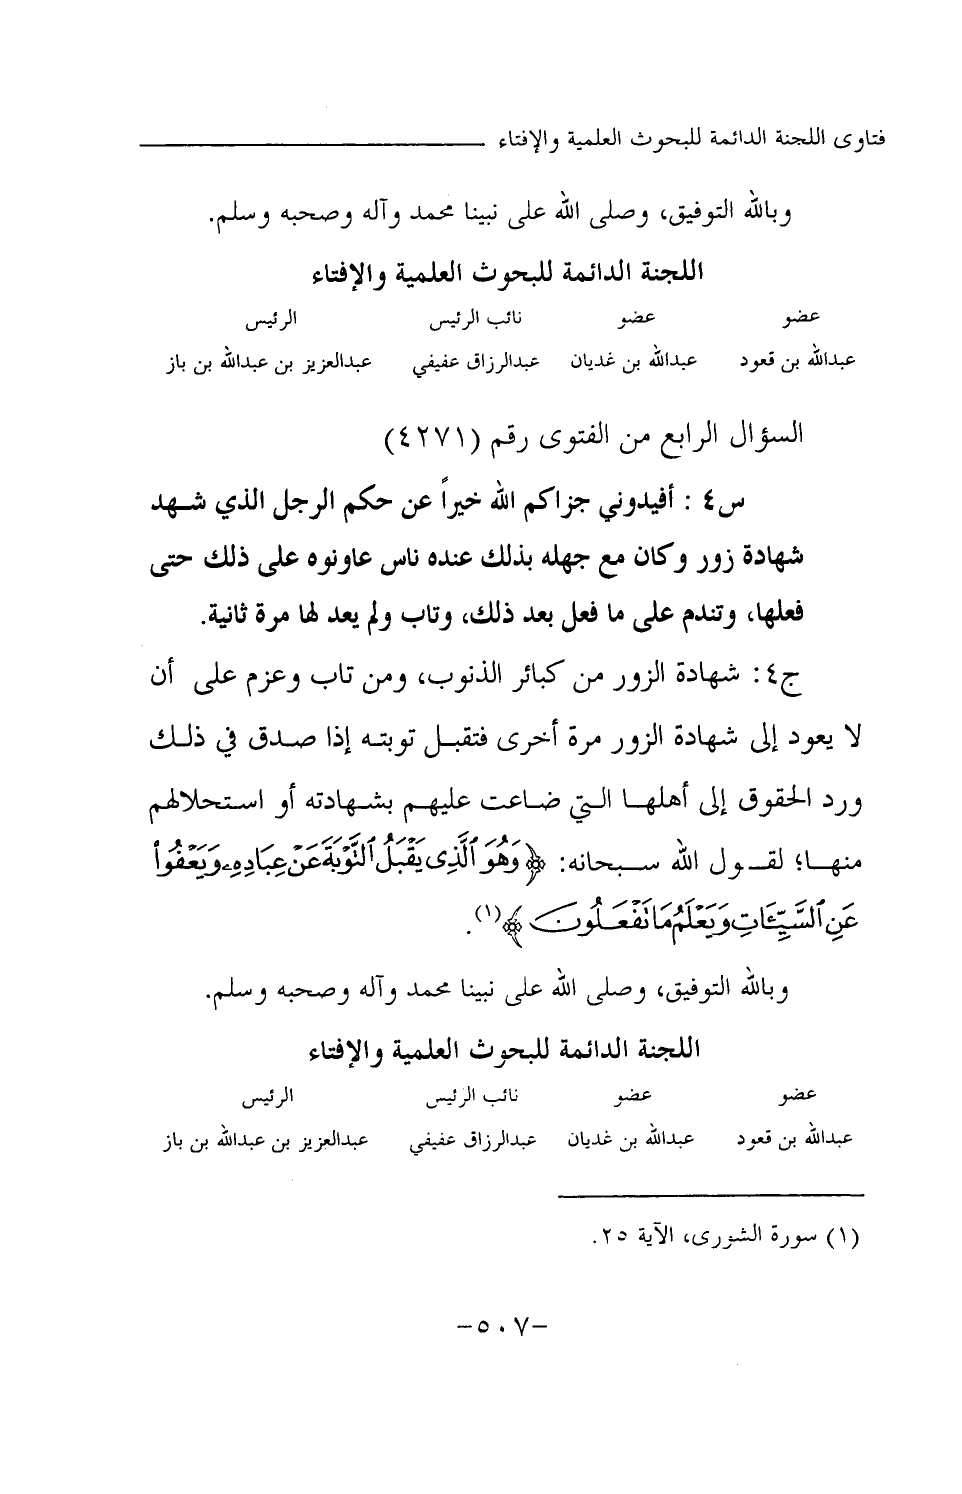 فتاوى اللجنة الدائمة للبحوث العلمية والإفتاء
وبالله التوفيق، وصلى الله على نبينا محمد وآله وصحبه وسلم.
اللجنة الدائمة للبحوث العلمية والإفتاء
عضو عضو نائب الرئيس الرئيس
عبدالله بن قعود عبدالله بن غديان عبدالرزاق عفيفي عبدالعزيز بن عبدالله بن باز
السؤال الرابع من الفتوى رقم (٤٢٧١)
س٤ : أفيدوني جزاكم الله خيراً عن حكم الرجل الذي شهد
شهادة زور وكان مع جهله بذلك عنده ناس عاونوه على ذلك حتى
فعلها، وتندم على ما فعل بعد ذلك، وتاب ولم يعد لها مرة ثانية.
ج٤: شهادة الزور من كبائر الذنوب، ومن تاب وعزم على أن
لا يعود إلى شهادة الزور مرة أخرى فتقبل توبته إذا صدق في ذلك
ورد الحقوق إلى أهلها التي ضاعت عليهم بشهادته أو استحلالهم
منها؛ لقول الله سبحانه: ﴿وَهُوَ ٱلَّذِى يَقْبَلُ ٱلتَّوْبَةَ عَنْ عِبَادِهِۦ وَيَعْفُوا۟
عَنِ ٱلسَّيِّـَٔاتِ وَيَعْلَمُ مَا تَفْعَلُونَ﴾(١).
وبالله التوفيق، وصلى الله على نبينا محمد وآله وصحبه وسلم.
اللجنة الدائمة للبحوث العلمية والإفتاء
عضو عضو نائب الرئيس الرئيس
عبدالله بن قعود عبدالله بن غديان عبدالرزاق عفيفي عبدالعزيز بن عبدالله بن باز
(١) سورة الشورى، الآية ٢٥.
-٥٠٧-